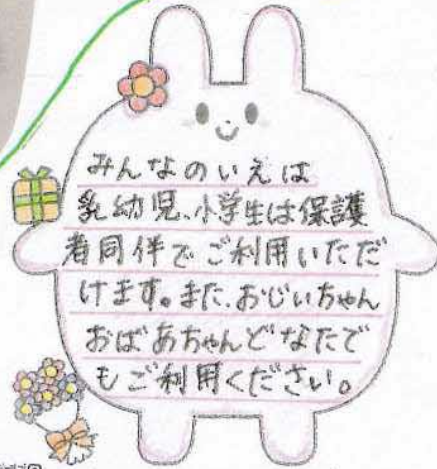 みんなのいえは
乳幼児、小学生は保護
者同伴でご利用いただ
けます。また、おじいちゃん
おばあちゃんどなたで
もご利用ください。